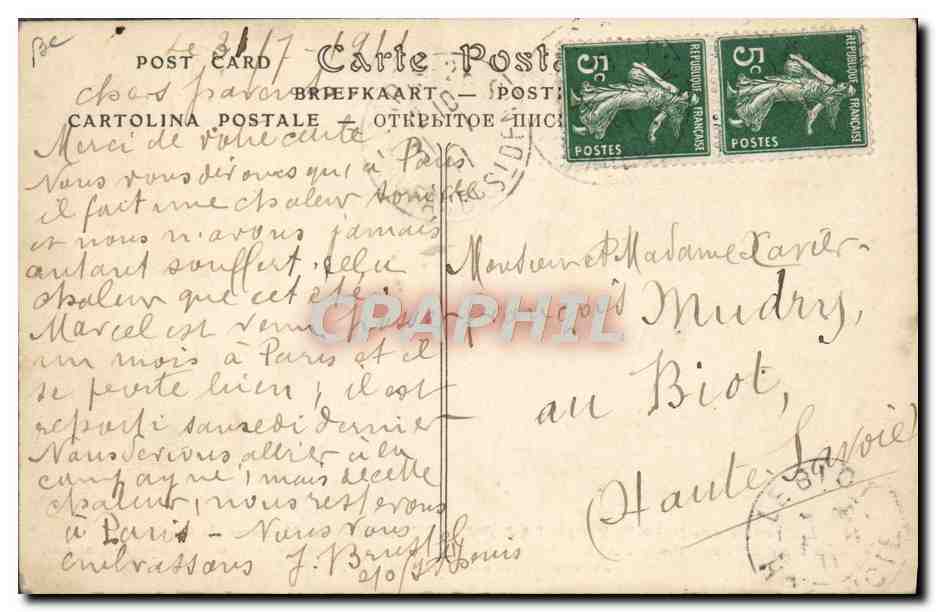 Le 31/7 - 1911
POST CARD Carte Posta
BRIEFKAART — POST
CARTOLINA POSTALE — ОТКРЫТОЕ ПИС
5c
REPUBLIQUE FRANÇAISE
POSTES
5c
REPUBLIQUE FRANÇAISE
POSTES
Chers
Merci de votre carte
Nous vous dirons qu'à Paris
il fait une chaleur
et nous n'avons jamais
autant souffert de la
chaleur que cet été.
Marcel est venu passer
un mois à Paris et il
se porte bien, il est
reparti samedi dernier
Nous devions aller à la
campagne, mais de cette
chaleur, nous resterons
à Paris - Nous vous
embrassons J. Brustel
210 St Denis
Monsieur & Madame Xavier
François Mudry,
au Biot,
Haute-Savoie
LE BIOT
CPARHIL